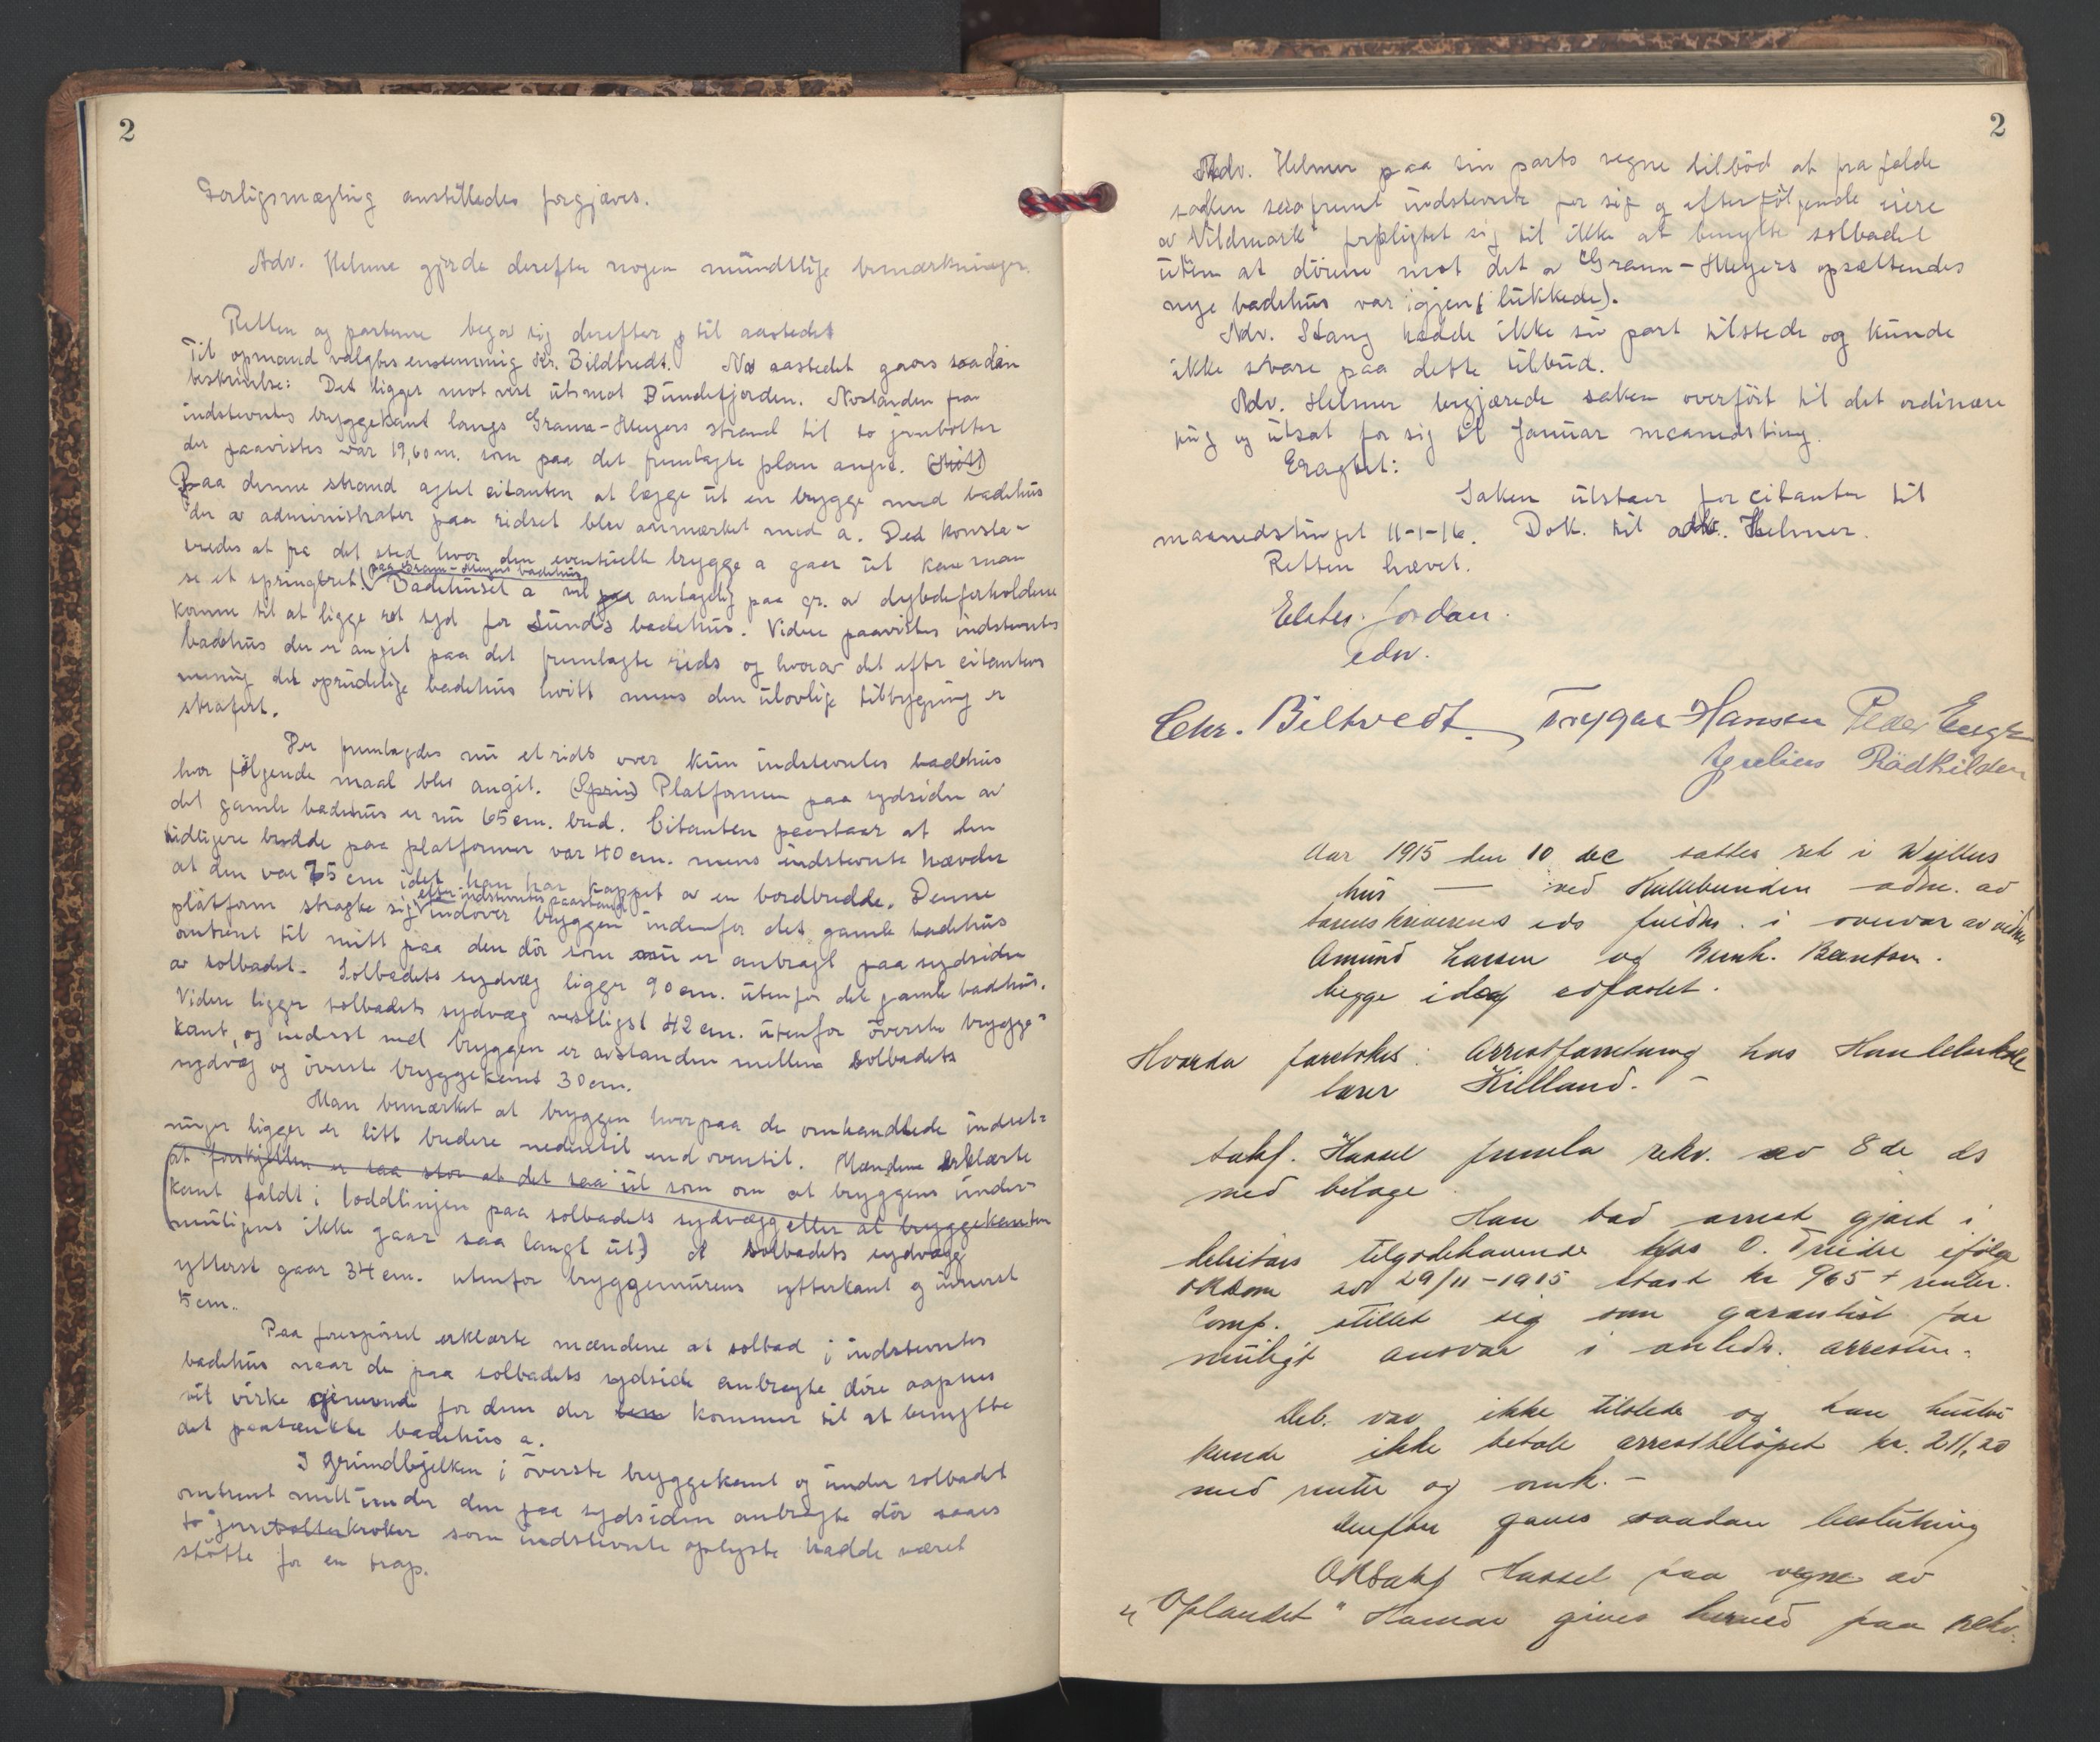 2
Forligsmægling anstilledes forgjæves.
Adv. Helmer gjorde derefter nogen mundtlige bemærkninger.
Retten og parterne begav sig derefter til aastedet
Til opmand valgtes enstemmig Chr. Bildtvedt. Av aastedet gaves saadan
beskrivelse: Det ligger mot vest ut mot Bundefjorden. Avstanden fra
indstevntes bryggekant langs Grann-Meyers strand til to jernbolter
der paavistes var 19,60 m. som paa det fremlagte plan angit.
Paa denne strand agtet citanten at lægge ut en brygge med badehus
der av administrator paa ridset blev anmærket med a. Det konsta-
teredes at fra det sted hvor den eventuelle brygge a gaar ut kan man
se et springbret. paa Grann-Meyers badehus Badehuset a vil paa antagelig paa gr. av dybdeforholdene
komme til at ligge ret syd for Sunds badehus. Videre paavistes indstevntes
badehus der er angit paa det fremlagte rids og hvorav det efter citantens
mening det oprindelige badehus hvitt mens den ulovlige tilbygning er
strafert.
Der fremlagdes nu et rids over kun indstevntes badehus
hvor følgende maal blev angit. Platformen paa sydsiden av
det gamle badehus er nu 65 cm. bred. Citanten paastaar at den
tidligere bredde paa platformen var 40 cm. mens indstevnte hævder
at den var 75 cm idet han har kappet av en bordbredde. Denne
platform stragte sig efter indstevntes paastand indover bryggen indenfor det gamle badehus
omtrent til mitt paa den dør som nu er anbragt paa sydsiden
av solbadet. Solbadets sydvæg ligger 90 cm. utenfor det gamle badehus.
Videre ligger solbadets sydvæg vestligst 42 cm. utenfor øverste brygge-
kant, og inderst ved bryggen er avstanden mellem solbadets
sydvæg og øverste bryggekant 30 cm.
Man bemærket at bryggen hvorpaa de omhandlede indret-
ninger ligger er litt bredere nedentil end oventil. Mændene erklærte
at forskjellen er saa stor at det saa ut som om at bryggens under-
kant faldt i loddlinjen paa solbadets sydvægg eller at bryggekanten
muligens ikke gaar saa langt ut) at solbadets sydvægg
ytterst gaar 34 cm. utenfor bryggemurens ytterkant og inderst
5 cm.
Paa forespørsel erklærte mændene at solbad i indstevntes
badehus naar de paa solbadets sydside anbragte døre aapnes
vil virke generende for dem der kommer til at benytte
det paatænkte badehus a.
I grundbjelken i øverste bryggekant og under solbadet
omtrent mitt under den paa sydsiden anbragte dør saaes
to jernbolter kroker som indstevnte oplyste hadde været
støtte for en trap.
2
Adv. Helmer paa sin parts vegne tilbød at frafalde
saken saafremt indstevnte for sig og efterfølgende eiere
av "Vildmark" forpligtet sig til ikke at benytte solbadet
uten at dørene mot det av Grann-Meyers opsættendes
nye badehus var igjen (lukkede).
Adv. Stang hadde ikke sin part tilstede og kunde
ikke svare paa dette tilbud.
Adv. Helmer begjærede saken overført til det ordinære
ting og utsat for sig til Januar maanedsting.
Eragtet:
Saken utstaar for citanten til
maanedstinget 11-1-16. Dok. til adv. Helmer.
Retten hævet.
Elster. Jordan.
edv.
Chr. Biltvedt. Trygve Hansen Peder Engh
Rödkilden
Aar 1915 den 10 dec sattes ret i Wejllus
hus — ved Kullebunden adm. av
sorenskriverens eds fuldm. i overvær av vidner
Amund Larsen og Bernh. Berntsen.
begge idag edfæstet.
Hvorda foretokes: Arrestforretning hos Handelsskole
lærer Kielland. -
Sakf. Hassel fremla rekv. av 8de ds
med bilage.
Han bad arrest gjort i
debitors tilgodehavende hos O. Treider ifølge
OR dom av 29/11-1915 stort kr 965 + renter.
Comp. stillet sig som garantist for
muligt ansvar i anledn. arresten.
Deb. var ikke tilstede og han hustru
kunde ikke betale arrestbeløpet kr. 211,20
med renter og omk. -
Derefter gaves saadan beslutning
ORSakf Hassel paa vegne av
"Oplandet" Hamar gives herved paa rekv.